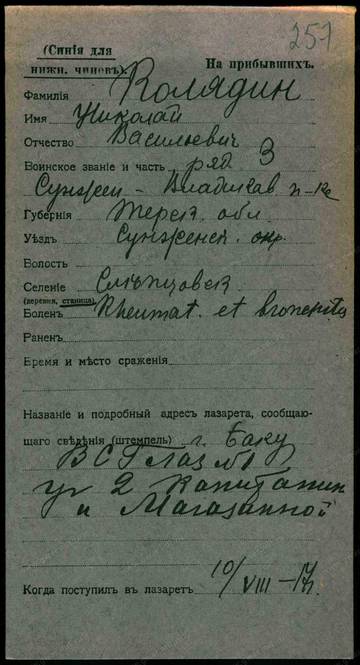 257
(Синія для
нижн. чиновъ).
На прибывшихъ.
Фамилія Колядин
Имя Николай
Отчество Васильевич
Воинское званіе и часть ряд 3
Сунжен - Владикав п-ка
Губернія Терск. обл.
Уѣздъ Сунженск. окр.
Волость
Селеніе Слѣпцовск
(деревня, станица)
Боленъ Rheumat. et bronchitis
Раненъ
Время и мѣсто сраженія
Названіе и подробный адресъ лазарета, сообщаю-
щаго свѣдѣнія (штемпель) г. Баку
В С Г Лаз №1
уг 2 Капитанк
и Магазанной
Когда поступилъ въ лазаретъ 10/VIII-17 г.